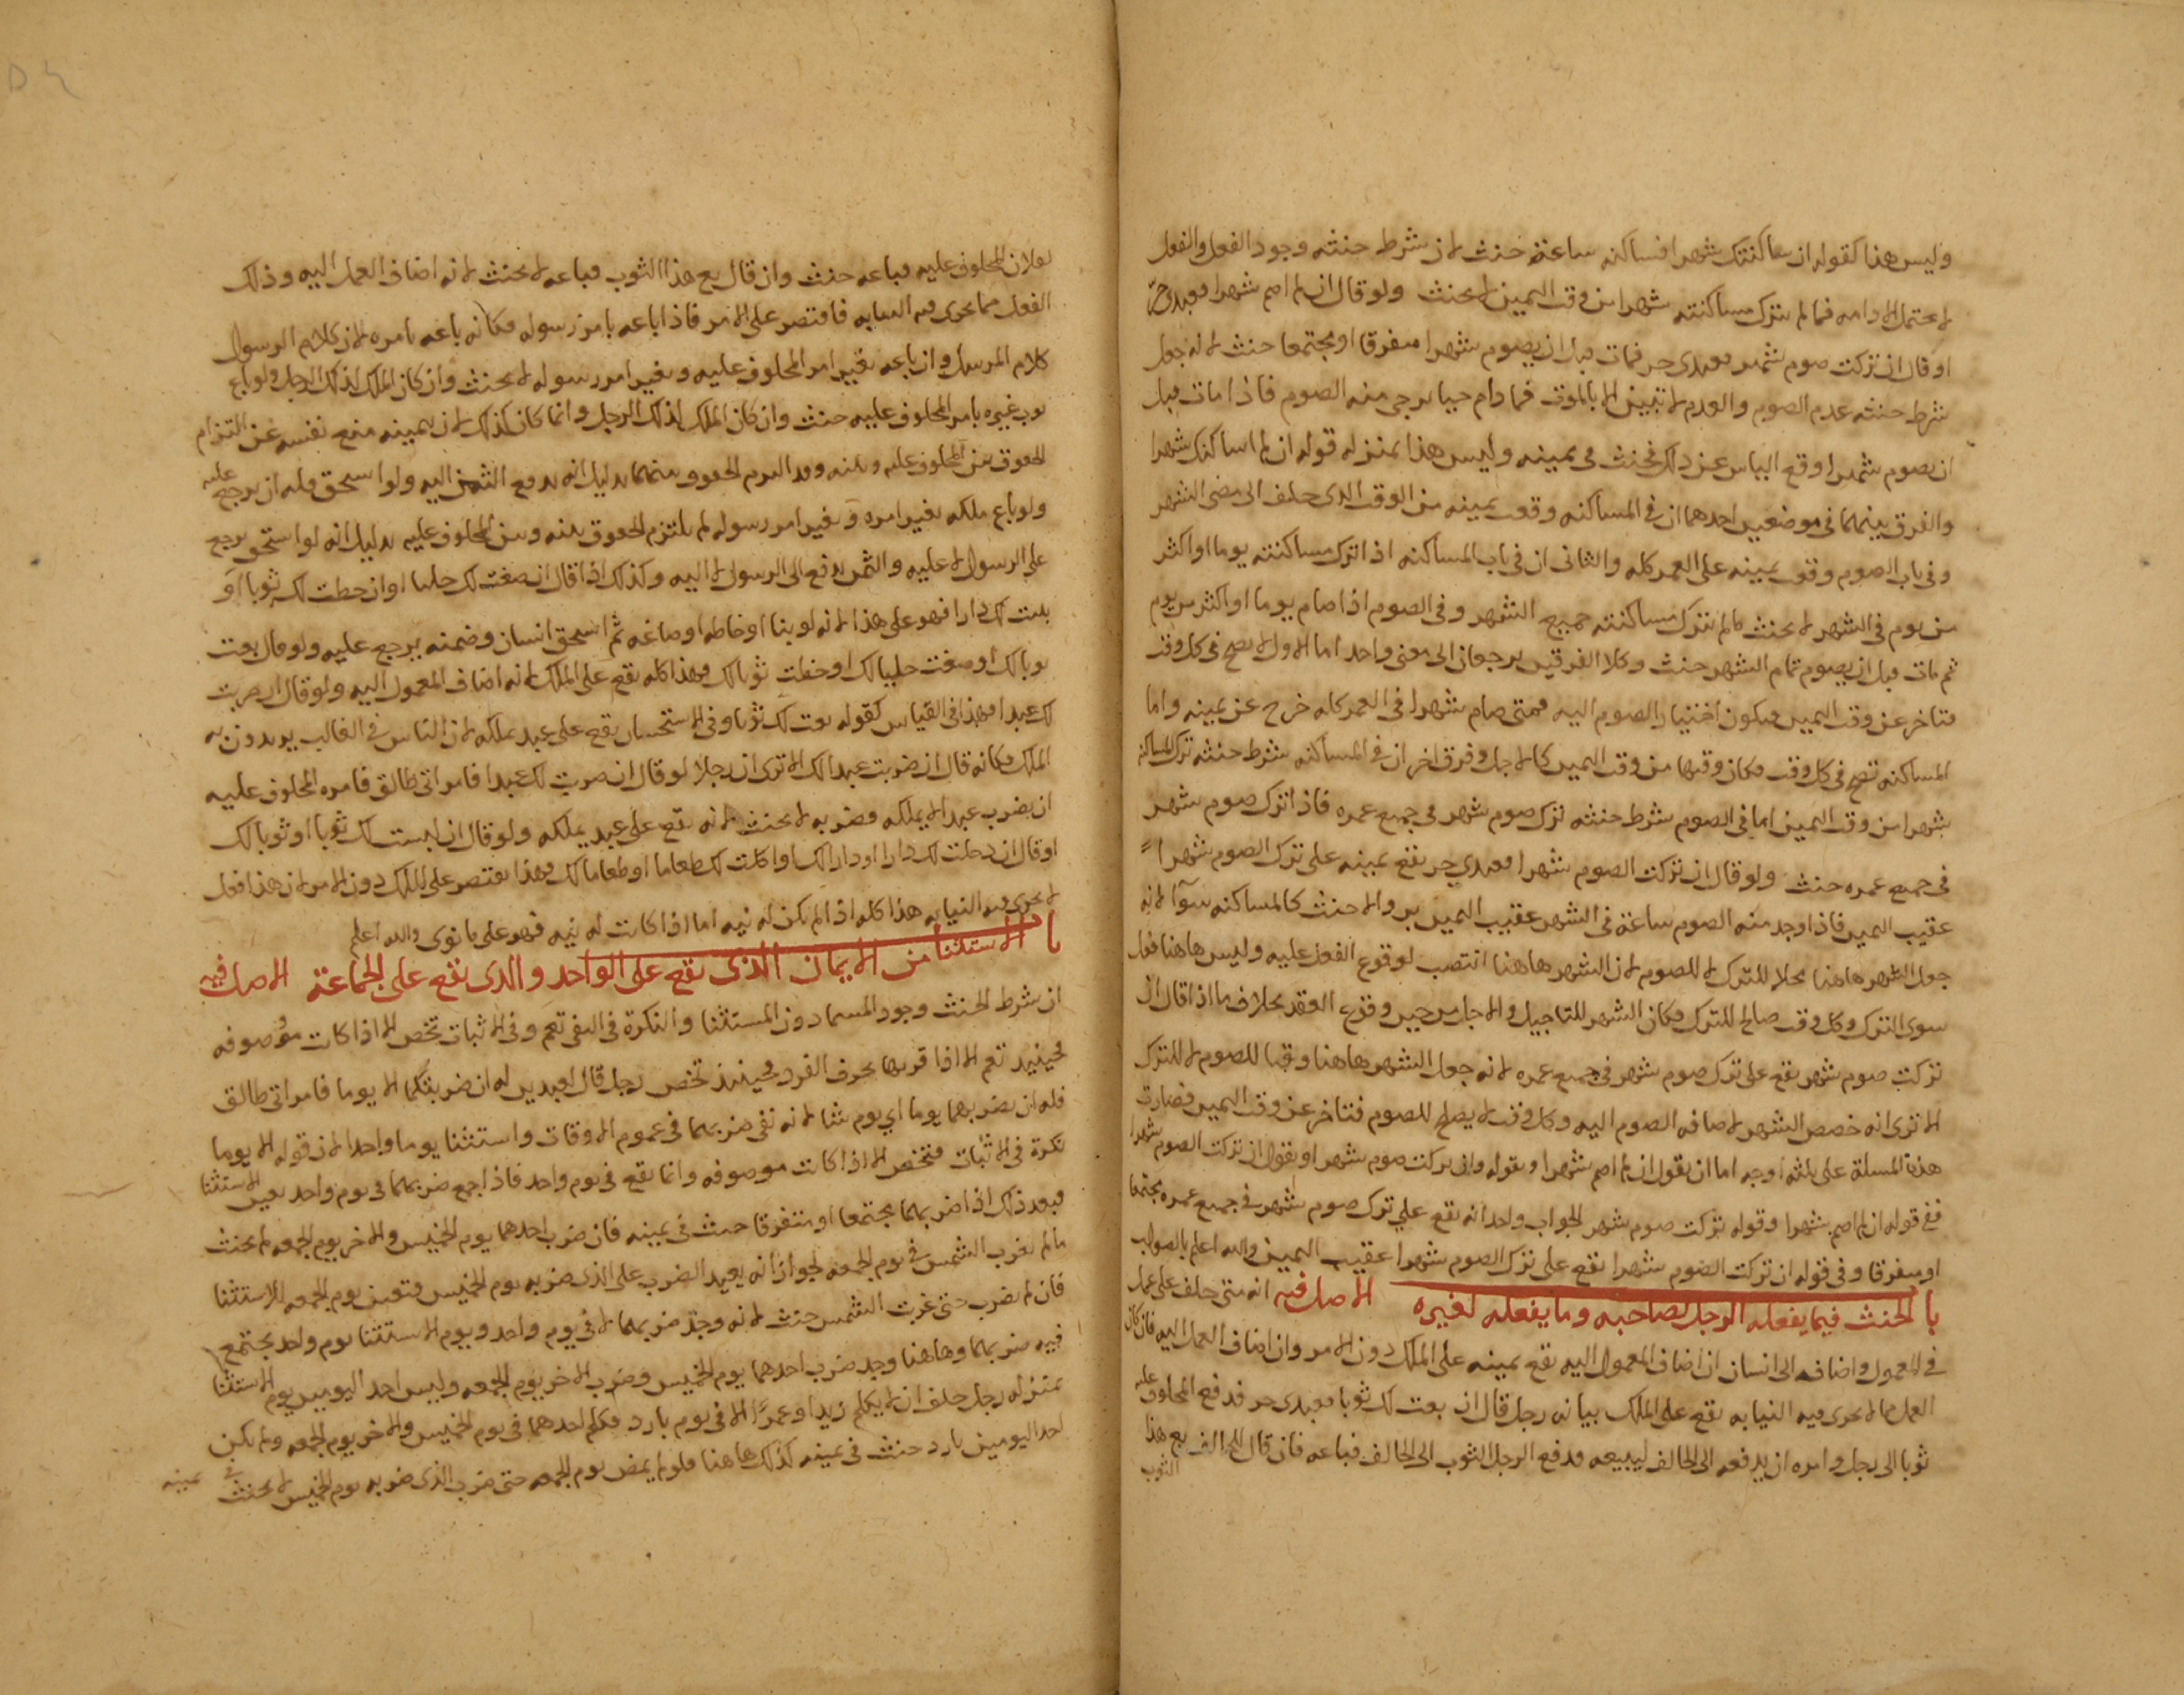 وليس هذا كقوله ان ساكنتك شهرا فساكنه ساعة حنث لان شرط حنثه وجود الفعل والفعل
لا يحتمل الادامه فما لم يترك مساكنته شهرا من وقت اليمين لا يحنث ولو قال ان لم اصم شهرا فعبدى حر
او قال ان تركت صوم شهر فعبدى حر فمات قبل ان يصوم شهرا متفرقا او مجتمعا حنث لانه جعل
شرط حنثه عدم الصوم والعدم لا تبين الا بالموت فما دام حيا يرجى منه الصوم فاذا مات قبل
ان يصوم شهرا وقع الياس عن ذلك فحنث في يمينه وليس هذا بمنزله قوله ان لم اساكنك شهرا
والفرق بينهما في موضعين احدهما ان في المساكنه وقعت يمينه من الوقت الذى حلف الى مضى الشهر
وفي باب الصوم وقعت يمينه على العمر كله والثانى ان في باب المساكنه اذا ترك مساكنته يوما او اكثر
من يوم في الشهر لا يحنث ما لم يترك مساكنته جميع الشهر وفي الصوم اذا صام يوما او اكثر من يوم
ثم مات قبل ان يصوم تمام الشهر حنث وكلا الفرقين يرجعان الى معنى واحد اما الاول لا يصح في كل وقت
فتاخر عن وقت اليمين فيكون اختيار الصوم اليه فمتى صام شهرا في العمر كله خرج عن يمينه واما
المساكنه تصح في كل وقت فكان وقتها من وقت اليمين كالاجل وفرق اخر ان في المساكنه شرط حنثه ترك المساكنه
شهرا من وقت اليمين اما في الصوم شرط حنثه ترك صوم شهر في جميع عمره فاذا ترك صوم شهر
في جميع عمره حنث ولو قال ان تركت الصوم شهرا فعبدي حر يقع يمينه على ترك الصوم شهرا
عقيب اليمين فاذا وجد منه الصوم ساعة في الشهر عقيب اليمين بر والا حنث كالمساكنه سوآ لانه
جعل الشهر هاهنا محلا للترك لا للصوم لان الشهر هاهنا انتصب لوقوع الفعل عليه وليس هاهنا فعل
سوى الترك وكل وقت صالح للترك فكان الشهر للتاجيل والاجل من حين وقوع العقد بخلاف ما اذا قال ان
تركت صوم شهر يقع على ترك صوم شهر في جميع عمره لانه جعل الشهر هاهنا وقتا للصوم لا للترك
الا ترى انه خصص الشهر لاضافه الصوم اليه وكل وقت لا يصلح للصوم فتاخر عن وقت اليمين فصارت
هذه المسلة على ثلثه اوجه اما ان يقول ان لم اصم شهرا او بقوله وان تركت صوم شهر او يقول ان تركت الصوم شهرا
ففي قوله ان لم اصم شهرا وقوله تركت صوم شهر الجواب واحد انه يقع علي ترك صوم شهر في جميع عمره مجتمعا
او متفرقا وفي قوله ان تركت الصوم شهرا يقع على ترك الصوم شهرا عقيب اليمين والله اعلم بالصواب
باب الحنث فيما يفعله الرجل لصاحبه وما يفعله لغيره الاصل فيه انه متى حلف على عمل
في المعمول واضافه الى انسان ان اضاف المعمول اليه يقع يمينه على الملك دون الامر وان اضاف العمل اليه فان كان
العمل مما لا يجرى فيه النيابه يقع على الملك بيانه رجل قال ان بعت لك ثوبا فعبدى حر فدفع المحلوف عليه
ثوبا الى رجل وامره ان يدفعه الى الحالف ليبيعه فدفع الرجل الثوب الى الحالف فباعه فان قال للحالف بع هذا
الثوب
لفلان المحلوف عليه فباعه حنث وان قال بع هذا الثوب فباعه لا يحنث لانه اضاف العمل اليه وذلك
الفعل مما يجرى فيه النيابه فاقتصر على الامر فاذا باعه بامر رسوله فكانه باعه بامره لان كلام الرسول
كلام المرسل وان باعه بغير امر المحلوف عليه وبغير امر رسوله لا يحنث وان كان الملك لذلك الرجل ولو باع
ثوب غيره بامر المحلوف عليه حنث وان كان الملك لذلك الرجل وانما كان كذلك لان يمينه منع نفسه عن التزام
الحقوق بين المحلوف عليه وبينه وقد التزم الحقوق بينهما بدليل انه يدفع الثمن اليه ولو استحق فله ان يرجع عليه
ولو باع ملكه بغير امره وبغير امر رسوله لم يلتزم الحقوق بينه وبين المحلوف عليه بدليل انه لو استحق يرجع
على الرسول لا عليه والثمن يدفع الى الرسول لا اليه وكذلك اذا قال ان صغت لك حليا او ان خطت لك ثوبا او
بنيت لك دارا فهو على هذا لانه لو بنا او خاطه او صاغه ثم استحق انسان وضمنه يرجع عليه ولو قال بعت
ثوبا لك او صغت حليا لك او خطت ثوبا لك فهذا كله يقع على الملك لانه اضاف المعمول اليه ولو قال ان ضربت
لك عبدا فهذا في القياس كقوله بعت لك ثوبا وفي الاستحسان يقع على عبد يملكه لان الناس في الغالب يريدون به
الملك فكانه قال ان ضربت عبدا لك الا ترى ان رجلا لو قال ان ضربت لك عبدا فامراتى طالق فامره المحلوف عليه
ان يضرب عبدا لا يملكه فضربه لا يحنث لانه يقع على عبد يملكه ولو قال ان لبست لك ثوبا او ثوبا لك
او قال ان دخلت لك دارا او دارا لك او اكلت لك طعاما او طعاما لك فهذا يقتصر على الملك دون الامر لان هذا فعل
لا يجرى فيه النيابه هذا كله اذا لم يكن له نيه اما اذا كانت له نيه فهو على ما نوى والله اعلم
باب الاستثنا من الايمان الذى يقع على الواحد والذى يقع على الجماعة الاصل فيه
ان شرط الحنث وجود المسما دون المستثنا والنكرة في النفى تعم وفي الاثبات تخص الا اذا كانت موصوفه
فحينيذ تعم الا اذا قرنها بحرف الفرد فحينيذ تخص رجل قال لعبدين له ان ضربتكما الا يوما فامراتى طالق
فله ان يضربهما يوما اي يوم شا لانه نفى ضربهما في عموم الاوقات واستثنا يوما واحدا لان قوله الا يوما
نكرة في الاثبات فتخص الا اذا كانت موصوفه وانما يقع في يوم واحد فاذا جمع ضربهما في يوم واحد تعين الاستثنا
فبعد ذلك اذا ضربهما مجتمعا او متفرقا حنث في يمينه فان ضرب احدهما يوم الخميس والاخر يوم الجمعه لا يحنث
ما لم تغرب الشمس في يوم الجمعه لجواز انه يعيد الضرب على الذى ضربه يوم الخميس فتعين يوم الجمعه للاستثنا
فان لم يضرب حتى غربت الشمس حنث لانه وجد ضربهما لا في يوم واحد ويوم الاستثنا يوم واحد يجتمع
فيه ضربهما وهاهنا وجد ضرب احدهما يوم الخميس وضرب الاخر يوم الجمعه وليس احد اليومين يوم الاستثنا
بمنزله رجل حلف ان لا يكلم زيدا وعمرا الا في يوم بارد فكلم احدهما في يوم الخميس والاخر يوم الجمعه ولم يكن
احد اليومين بارد حنث في يمينه كذلك هاهنا فلو لم يمض يوم الجمعه حتى ضرب الذى ضربه يوم الخميس لا يحنث في يمينه